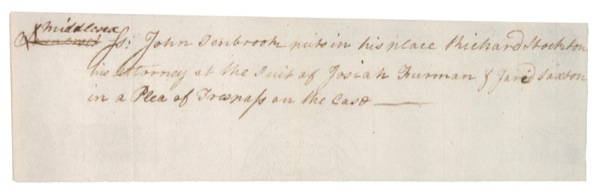 Middlesex
Somerset Js: John Tenbrook puts in his place Richard Stockton
his attorney at the Suit of Josiah Furman & Jared Saxton
in a Plea of Trespass on the Case